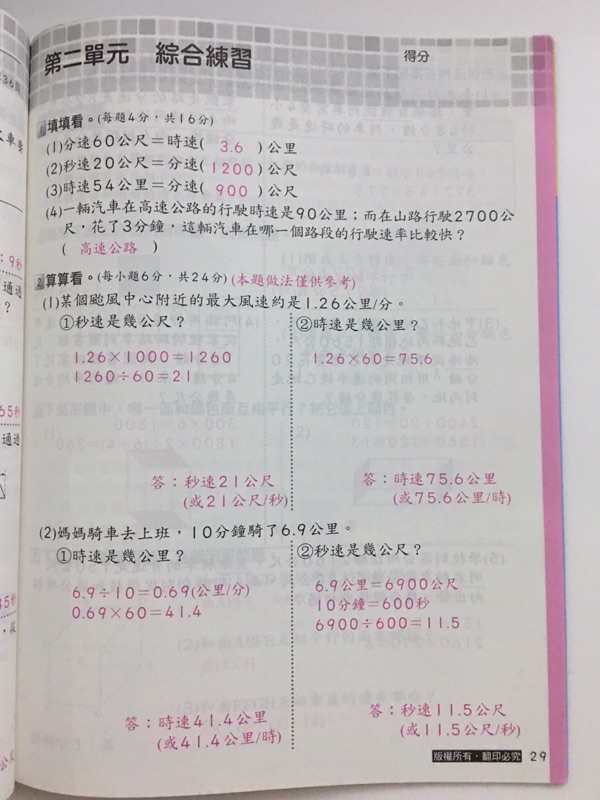 第二單元　綜合練習
得分
填填看。(每題4分，共16分)
(1)分速60公尺＝時速( 3.6 )公里
(2)秒速20公尺＝分速( 1200 )公尺
(3)時速54公里＝分速( 900 )公尺
(4)一輛汽車在高速公路的行駛時速是90公里；而在山路行駛2700公
尺，花了3分鐘，這輛汽車在哪一個路段的行駛速率比較快？
( 高速公路 )
算算看。(每小題6分，共24分)(本題做法僅供參考)
(1)某個颱風中心附近的最大風速約是1.26公里/分。
①秒速是幾公尺？
1.26×1000＝1260
1260÷60＝21
答：秒速21公尺
(或21公尺/秒)
②時速是幾公里？
1.26×60＝75.6
答：時速75.6公里
(或75.6公里/時)
(2)媽媽騎車去上班，10分鐘騎了6.9公里。
①時速是幾公里？
6.9÷10＝0.69(公里/分)
0.69×60＝41.4
答：時速41.4公里
(或41.4公里/時)
②秒速是幾公尺？
6.9公里＝6900公尺
10分鐘＝600秒
6900÷600＝11.5
答：秒速11.5公尺
(或11.5公尺/秒)
版權所有・翻印必究 29